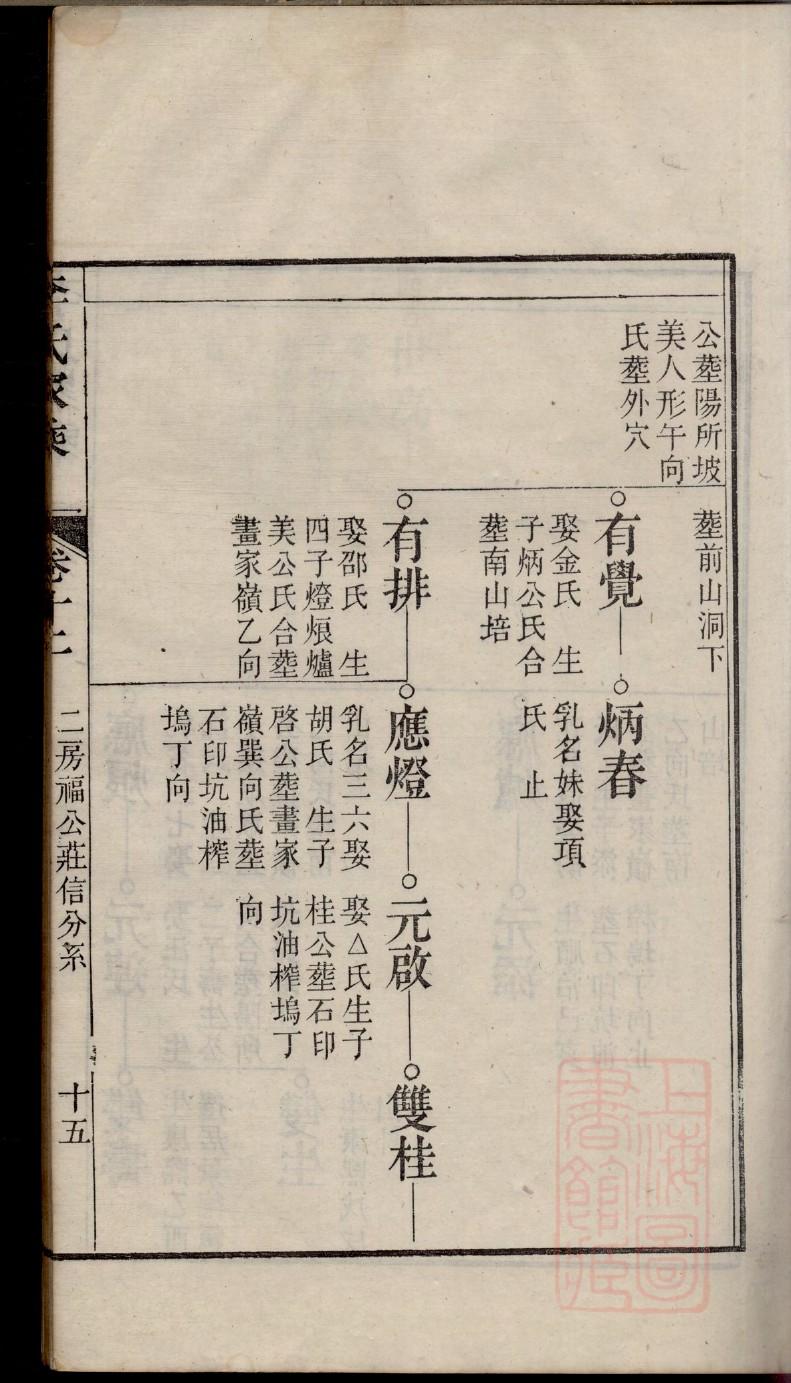 公塟陽所坡
美人形午向
氏塟外穴
塟前山洞下
有覺
娶金氏 生
子炳公氏合
塟南山培
炳春
乳名妹娶項
氏 止
有排
娶邵氏 生
四子燈烺爐
美公氏合塟
畫家嶺乙向
應燈
乳名三六娶
胡氏 生子
啓公塟畫家
嶺巽向氏塟
石印坑油榨
塢丁向
元啟
娶△氏生子
桂公塟石印
坑油榨塢丁
向
雙桂
李氏家乘
卷十二
二房福公莊信分系
十五
上海圖書館藏